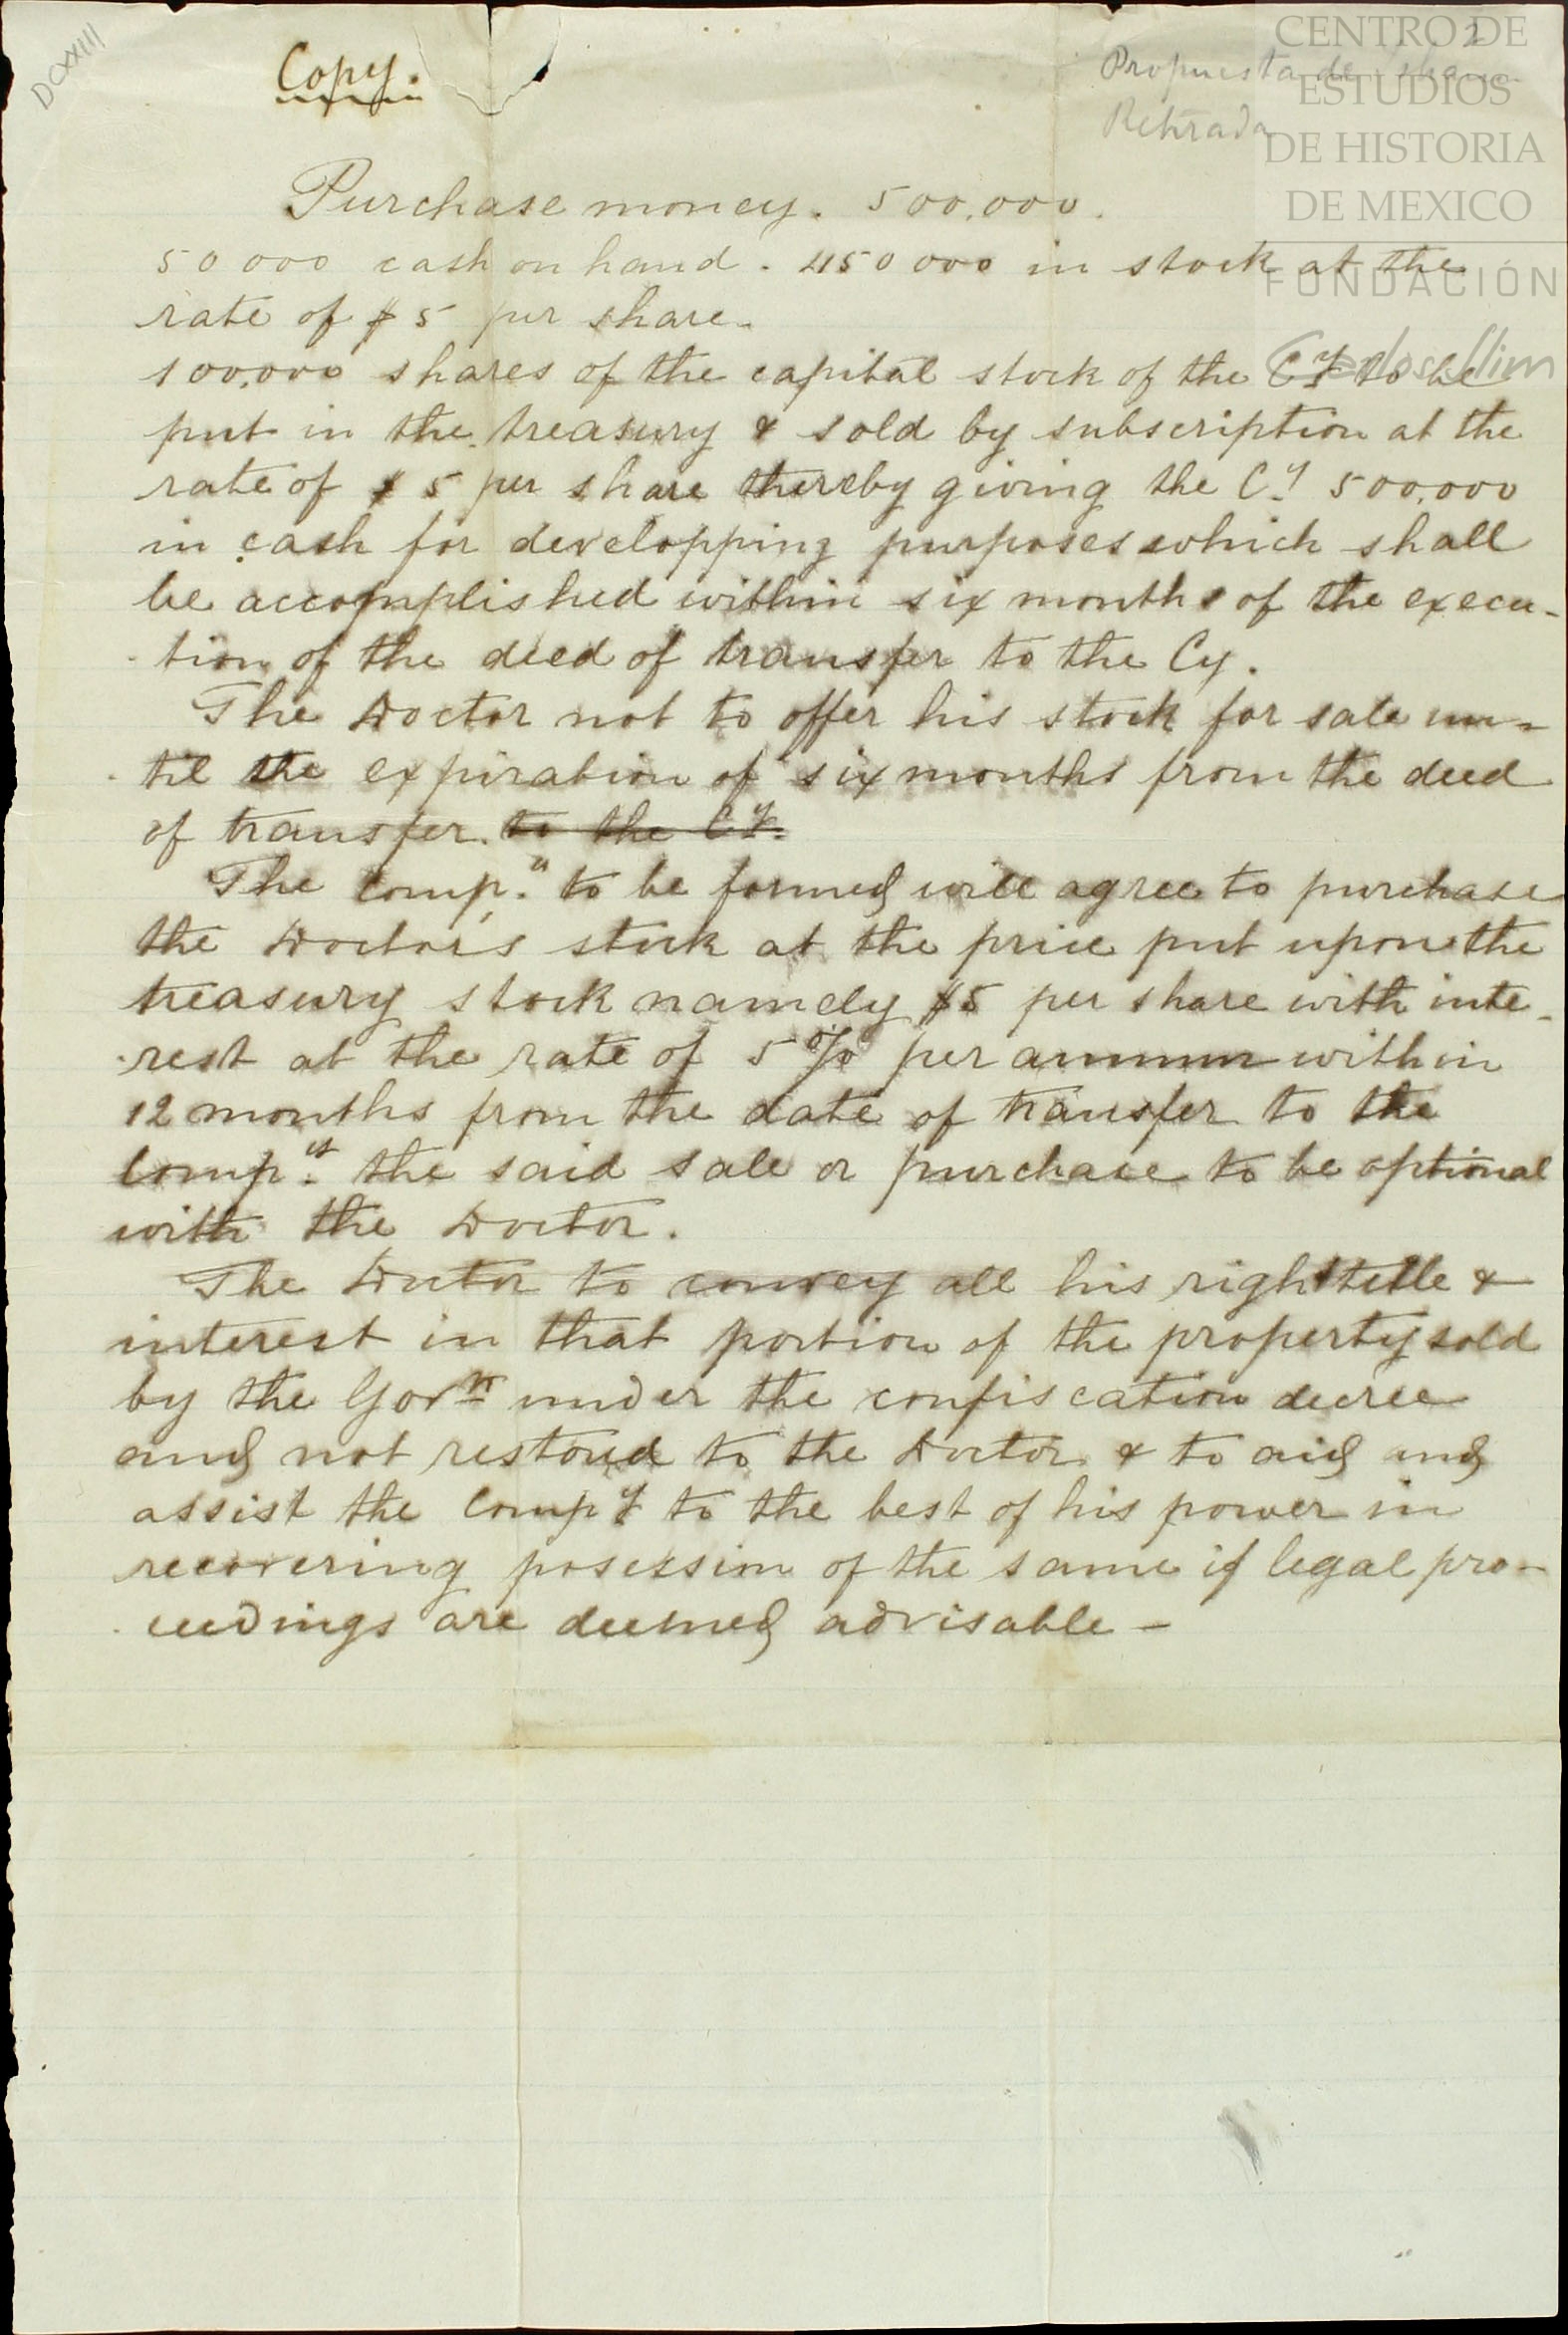 DCXXIII
Copy.
2
Propuesta de
Retirada
CENTRO DE
ESTUDIOS
DE HISTORIA
DE MEXICO
FUNDACIÓN
Carlos Slim
Purchase money. 500.000.
50000 cash on hand. 450000 in stock at the
rate of $5 per share.
100.000 shares of the capital stock of the Cy. to be
put in the treasury & sold by subscription at the
rate of $5 per share thereby giving the Cy. 500.000
in cash for developping purposes which shall
be accomplished within six months of the execu-
tion of the deed of transfer to the Cy.
The Doctor not to offer his stock for sale un-
til the expiration of six months from the deed
of transfer. to the Cy.
The Comp.y to be formed will agree to purchase
the Doctor's stock at the price put upon the
treasury stock namely $5 per share with inte-
rest at the rate of 5% per annum within
12 months from the date of transfer to the
Comp.y the said sale or purchase to be optional
with the Doctor.
The Doctor to convey all his right title &
interest in that portion of the property sold
by the Govnt under the confiscation decree
and not restored to the Doctor & to aid and
assist the Compy to the best of his power in
recovering posession of the same if legal pro-
ceedings are deemed advisable -